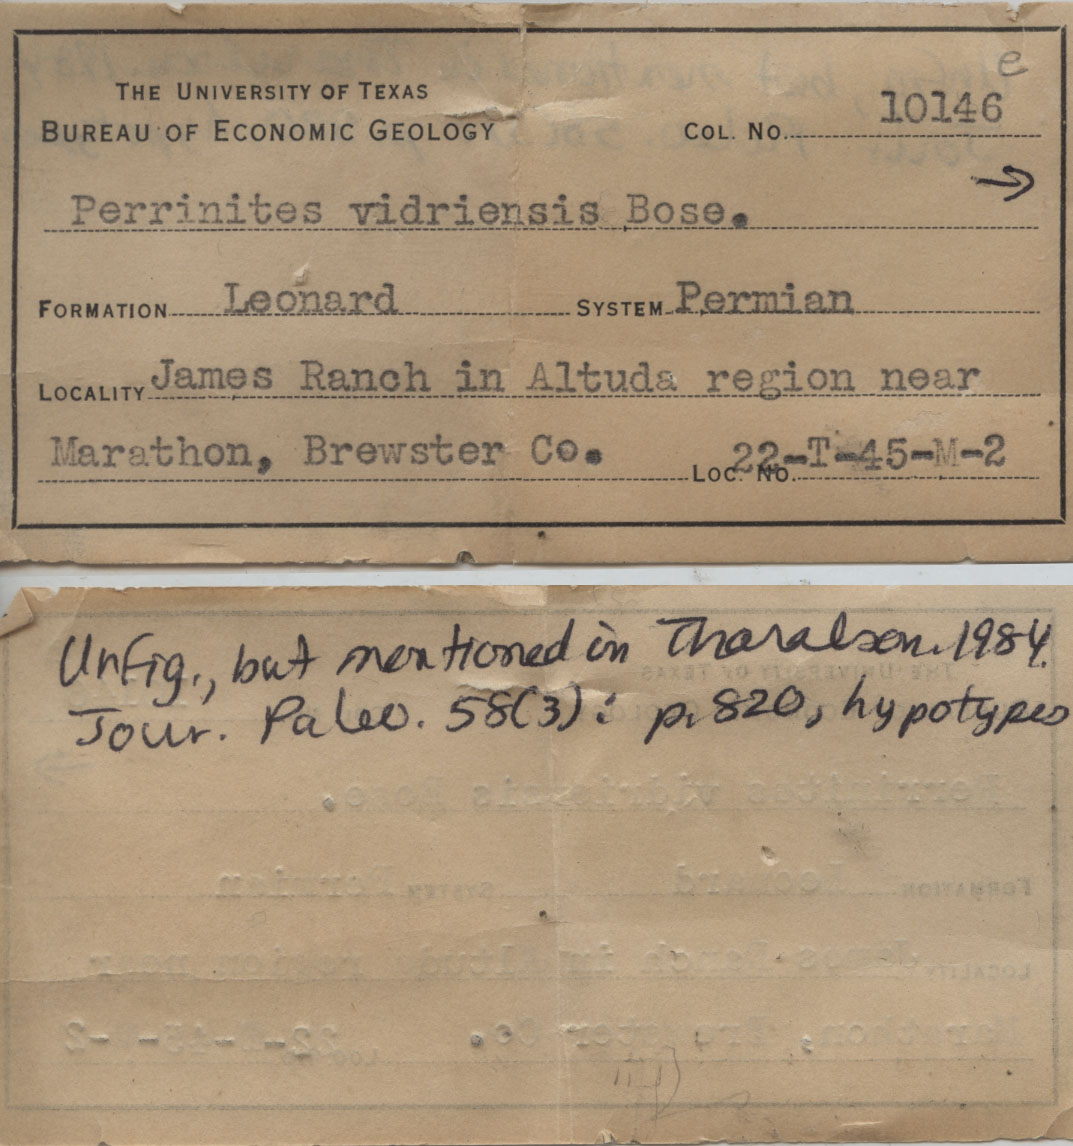 e
THE UNIVERSITY OF TEXAS
BUREAU OF ECONOMIC GEOLOGY COL. NO. 10146
→
Perrinites vidriensis Bose.
FORMATION Leonard SYSTEM Permian
LOCALITY James Ranch in Altuda region near
Marathon, Brewster Co. LOC. NO. 22-T-45-M-2
Unfig., but mentioned in Tharalson. 1984.
Jour. Paleo. 58(3): p. 820, hypotypes